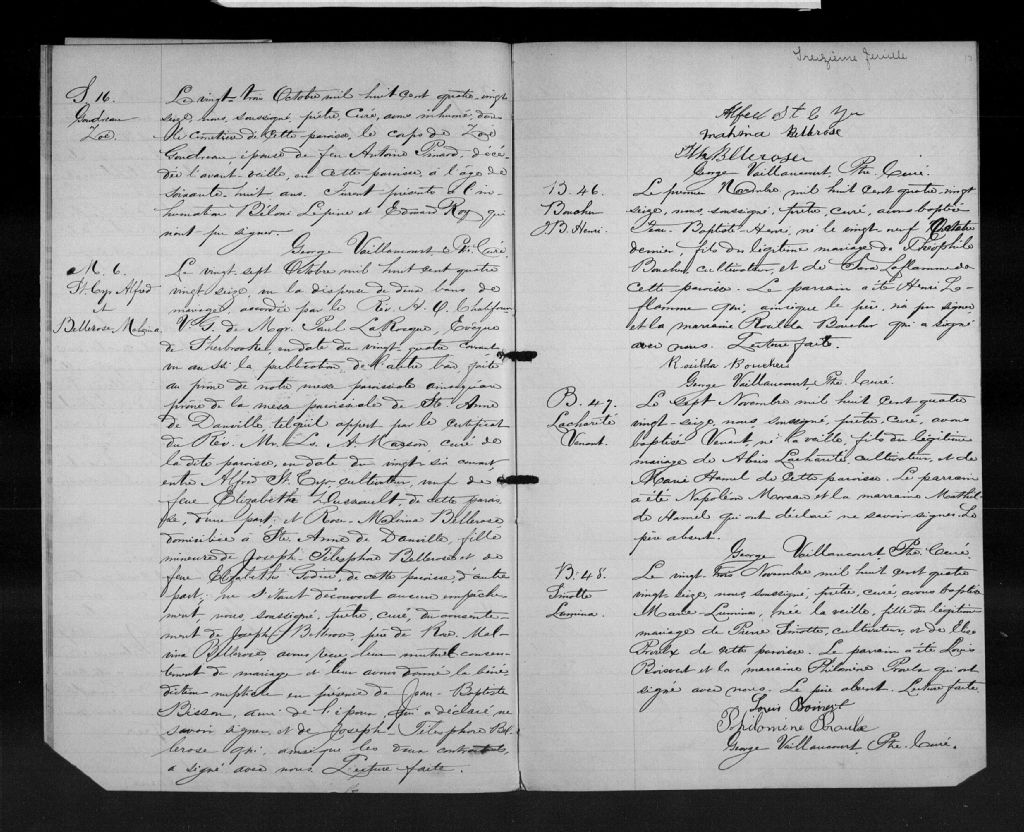 S 16.
Goudreau
Zoé.
Le vingt-trois Octobre mil huit cent quatre-vingt
seize, nous, soussigné, prêtre, Curé, avons inhumé, dans
le cimetière de cette paroisse, le corps de Zoé
Goudreau épouse de feu Antoine Pinard, décé-
dée l'avant-veille, en cette paroisse, à l'âge de
soixante-huit ans. Furent présents à l'in-
humation Béloni Lepine et Edouard Roy qui
n'ont pu signer.
George Vaillancourt, Ptre. Curé.
M. 6.
St. Cyr Alfred
et
Bellerose Malvina
Le vingt-sept Octobre mil huit cent quatre
vingt seize, vu la dispense de deux bans de
mariage, accordée par le Rév. H. O. Chalifoux
V. G. de Mgr. Paul LaRocque, Evêque
de Sherbrooke, en date du vingt-quatre courant
vu aussi la publication de l'autre ban, faite
au prône de notre messe paroissiale ainsi qu'au
prône de la messe paroissiale de Ste. Anne
de Danville, tel qu'il appert par le certificat
du Rév. Mr. Ls. A. Masson, curé de
la dite paroisse, en date du vingt-six courant,
entre Alfred St. Cyr, cultivateur, veuf de
feue Elizabethe, de cette parois
se, d'une part; et Rose-Malvina Bellerose
domiciliée à Ste. Anne de Danville, fille
mineure de Joseph Télesphore Bellerose et de
feue Elzabethe Godin, de cette paroisse, d'autre
part; ne s'étant découvert aucun empêche
ment, nous, soussigné, prêtre, curé, du consente-
ment de Joseph Bellerose, père de Rose-Mal-
vina Bellerose, avons reçu leur mutuel consen-
tement de mariage et leur avons donné la béné-
diction nuptiale en présence de Jean-Baptiste
Bisson, ami de l'époux, qui a déclaré ne
savoir signer, et de Joseph Télesphore Bel-
lerose qui, ainsi que les deux contractants,
a signé avec nous. Lecture faite.
Treizième feuille
Alfred St C yr
malvina Bellerose
Bellerose
George Vaillancourt, Ptre. Curé.
B. 46.
Boucher
J.B. Henri.
Le premier Novembre mil huit cent quatre-vingt
seize, nous, soussigné, prêtre, curé, avons baptisé
Jean-Baptiste-Henri, né le vingt-neuf Octobre
dernier, fils du légitime mariage de Théophile
Boucher, cultivateur, et de Sara Laflamme de
cette paroisse. Le parrain a été Henri La-
flamme qui, ainsi que le père, n'a pu signer
et la marraine Rosilda Boucher qui a signé
avec nous. Lecture faite.
Rosilda Boucher
George Vaillancourt, Ptre. Curé.
B. 47.
Lacharité
Venant.
Le Sept Novembre mil huit cent quatre
vingt-seize, nous, soussigné, prêtre, curé, avons
baptisé Venant, né la veille, fils du légitime
mariage de Lacharité, cultivateur, et de
Marie Hamel de cette paroisse. Le parrain
a été Napoléon Moreau et la marraine Mathil-
de Hamel qui ont déclaré ne savoir signer. Le
père absent.
George Vaillancourt Ptre. Curé.
B. 48.
Lumina.
Le vingt-trois Novembre mil huit cent quatre
vingt seize, nous, soussigné, prêtre, curé, avons baptisé
Marie Lumina, née la veille, fille du légitime
mariage de Pierre, cultivateur, et de Elise
Proulx de cette paroisse. Le parrain a été Louis
Boisvert et la marraine Philomène Proulx qui ont
signé avec nous. Le père absent. Lecture faite.
Louis Boisvert
Philomène Proulx
George Vaillancourt, Ptre. Curé.